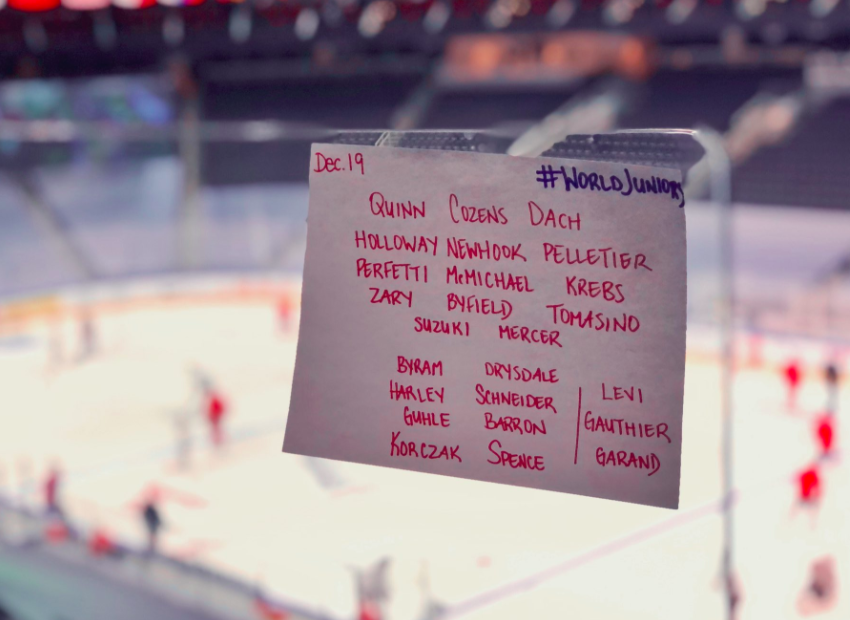 Dec. 19
#WORLDJUNIORS
QUINN COZENS DACH
HOLLOWAY NEWHOOK PELLETIER
PERFETTI McMICHAEL KREBS
ZARY BYFIELD TOMASINO
SUZUKI MERCER
BYRAM DRYSDALE
HARLEY SCHNEIDER LEVI
GUHLE BARRON GAUTHIER
KORCZAK SPENCE GARAND